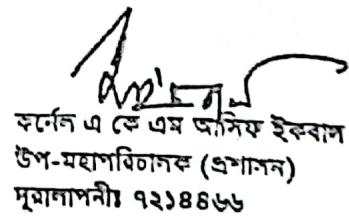 কর্নেল এ কে এম আসিফ ইকবাল
উপ-মহাপরিচালক (প্রশাসন)
দূরালাপনীঃ ৭২১৪৪৬৬